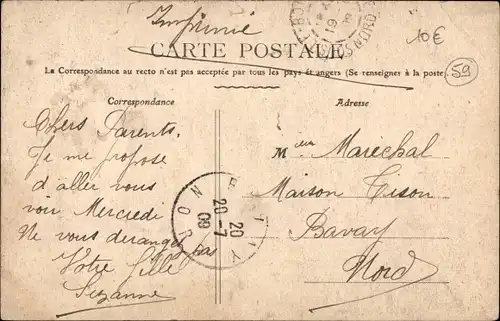 Imprimé
10€
CARTE POSTALE
59
La Correspondance au recto n'est pas acceptée par tous les pays étrangers (Se renseigner à la poste)
Correspondance
Chers Parents,
Je me propose
d'aller vous
voir Mercredi
Ne vous derangez pas
Votre fille
Suzanne
20
20-7
09
NORD
Adresse
Mr Maréchal
Maison Tison
Bavay
Nord